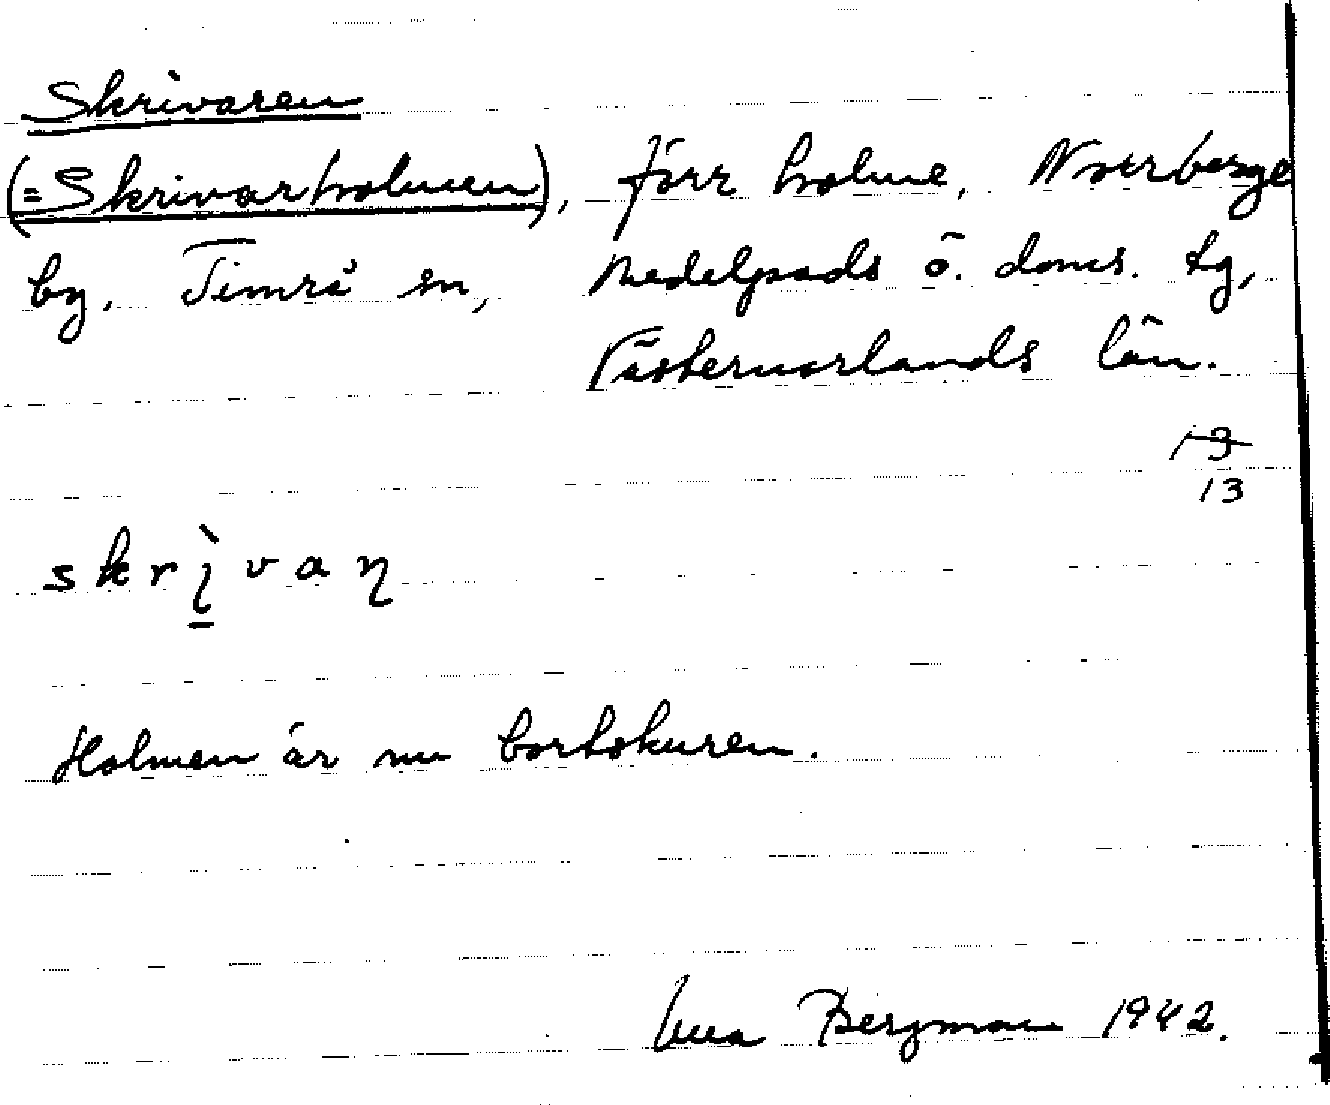 Skrivaren
(=Skrivarholmen), förr holme, Norrberge
by, Timrå sn, Medelpads ö. doms. tg,
Västernorlands län.
13
13
Holmen är nu bortskuren.
Bergman 1942.